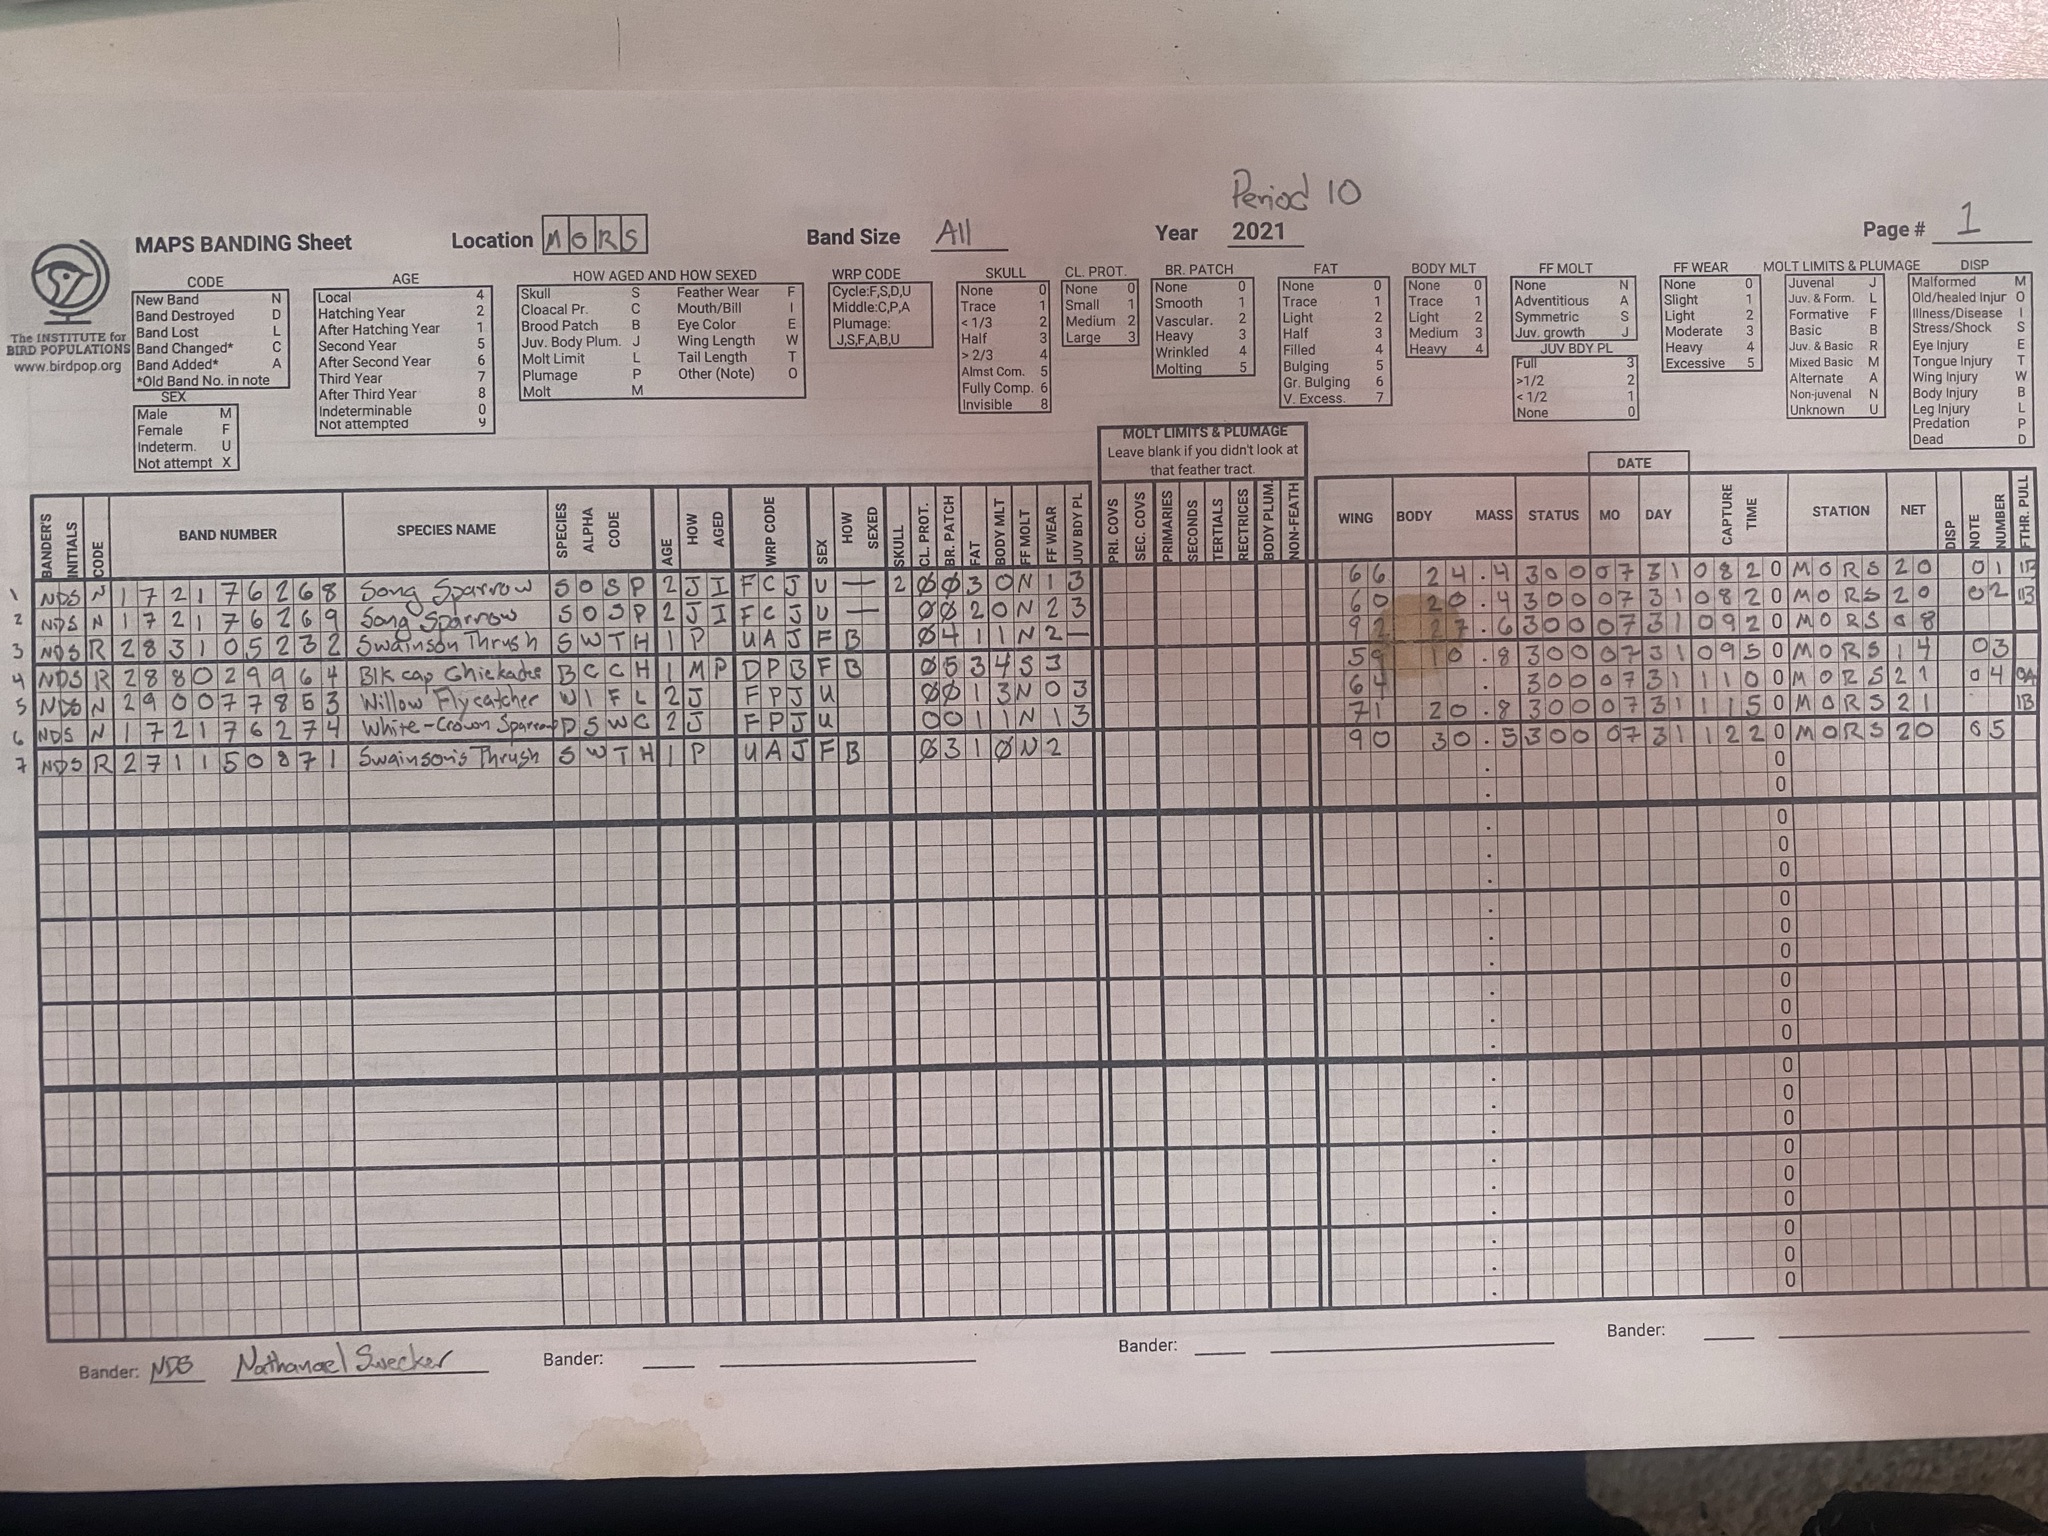 Period 10
MAPS BANDING Sheet Location MORS Band Size All Year 2021 Page # 1
The INSTITUTE for
BIRD POPULATIONS
www.birdpop.org
CODE
New Band N
Band Destroyed D
Band Lost L
Band Changed* C
Band Added* A
*Old Band No. in note
SEX
Male M
Female F
Indeterm. U
Not attempt X
AGE
Local 4
Hatching Year 2
After Hatching Year 1
Second Year 5
After Second Year 6
Third Year 7
After Third Year 8
Indeterminable 0
Not attempted 9
HOW AGED AND HOW SEXED
Skull S Feather Wear F
Cloacal Pr. C Mouth/Bill I
Brood Patch B Eye Color E
Juv. Body Plum. J Wing Length W
Molt Limit L Tail Length T
Plumage P Other (Note) O
Molt M
WRP CODE
Cycle:F,S,D,U
Middle:C,P,A
Plumage:
J,S,F,A,B,U
SKULL
None 0
Trace 1
< 1/3 2
Half 3
> 2/3 4
Almst Com. 5
Fully Comp. 6
Invisible 8
CL. PROT.
None 0
Small 1
Medium 2
Large 3
BR. PATCH
None 0
Smooth 1
Vascular. 2
Heavy 3
Wrinkled 4
Molting 5
FAT
None 0
Trace 1
Light 2
Half 3
Filled 4
Bulging 5
Gr. Bulging 6
V. Excess. 7
BODY MLT
None 0
Trace 1
Light 2
Medium 3
Heavy 4
FF MOLT
None N
Adventitious A
Symmetric S
Juv. growth J
JUV BDY PL
Full 3
>1/2 2
< 1/2 1
None 0
FF WEAR
None 0
Slight 1
Light 2
Moderate 3
Heavy 4
Excessive 5
MOLT LIMITS & PLUMAGE
Juvenal J
Juv. & Form. L
Formative F
Basic B
Juv. & Basic R
Mixed Basic M
Alternate A
Non-juvenal N
Unknown U
DISP
Malformed M
Old/healed Injur O
Illness/Disease I
Stress/Shock S
Eye Injury E
Tongue Injury T
Wing Injury W
Body Injury B
Leg Injury L
Predation P
Dead D
MOLT LIMITS & PLUMAGE
Leave blank if you didn't look at
that feather tract.
DATE
BANDER'S INITIALS CODE BAND NUMBER SPECIES NAME SPECIES ALPHA CODE AGE HOW AGED WRP CODE SEX HOW SEXED SKULL CL. PROT. BR. PATCH FAT BODY MLT FF MOLT FF WEAR JUV BDY PL PRI. COVS SEC. COVS PRIMARIES SECONDS TERTIALS RECTRICES BODY PLUM. NON-FEATH WING BODY MASS STATUS MO DAY CAPTURE TIME STATION NET DISP NOTE NUMBER FTHR. PULL
1 NDS N 172176268 Song Sparrow SOSP 2 JI FCJ U — 2 Ø Ø 3 0 N 1 3 66 24.4 300 07 31 0820 MORS 20 01
2 NDS N 172176269 Song Sparrow SOSP 2 JI FCJ U — Ø Ø 2 0 N 2 3 60 20.4 300 07 31 0820 MORS 20 02
3 NDS R 283105232 Swainson Thrush SWTH 1 P UAJ F B Ø 4 1 1 N 2 — 92 27.6 300 07 31 0920 MORS 08
4 NDS R 288029964 Blk cap Chickadee BCCH 1 MP DPB F B Ø 5 3 4 S 3 59 10.8 300 07 31 0950 MORS 14 03
5 NDS N 290077853 Willow Flycatcher WIFL 2 J FPJ U Ø Ø 1 3 N 0 3 64 . 300 07 31 1100 MORS 21 04
6 NDS N 172176274 White-Crown Sparrow DSWC 2 J FPJ U 0 0 1 1 N 1 3 71 20.8 300 07 31 1150 MORS 21 1B
7 NDS R 271150871 Swainson's Thrush SWTH 1 P UAJ F B Ø 3 1 Ø N 2 90 30.5 300 07 31 1220 MORS 20 05
Bander: NDS Nathanael Swecker Bander: Bander: Bander: